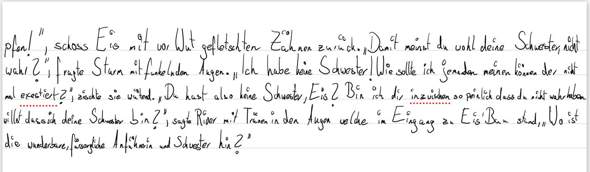 pfen!", schoss Eis mit vor Wut gefletschten Zähnen zurück. „Damit meinst du wohl deine Schwester, nicht
wahr?", fragte Sturm mit funkelnden Augen. „Ich habe keine Schwester! Wie sollte ich jemanden meinen können der nicht
mal exestiert?", zischte sie wütend. „Du hast also keine Schwester, Eis? Bin ich dir inzwischen so peinlich dass du nicht wahrhaben
willst dass ich deine Schwester bin?", sagte River mit Tränen in den Augen welche im Eingang zu Eis' Bau stand, „Wo ist
die wunderbare, fürsorgliche Anführerin und Schwester hin?"